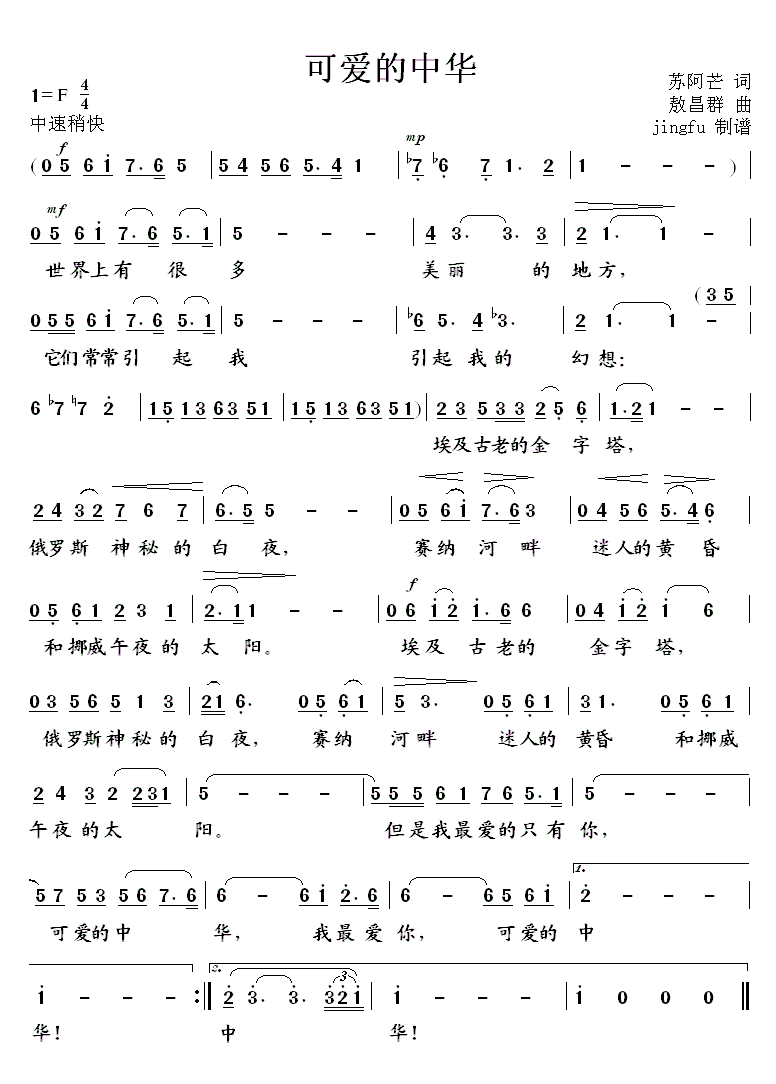 可爱的中华
1=F 4/4
苏阿芒 词
中速稍快
敖昌群 曲
jingfu 制谱
f mp
(0 5 6 i 7. 6 5 | 5 4 5 6 5. 4 1 | ♭7 ♭6 7 1. 2 | 1 - - - ) |
mf
0 5 6 i 7. 6 5. 1 | 5 - - - | 4 3. 3. 3 | 2 1. 1 - |
世界上有 很 多 美 丽 的 地 方，
(3 5
0 5 5 6 i 7. 6 5. 1 | 5 - - - | ♭6 5. 4 ♭3. | 2 1. 1 - |
它们常常引 起 我 引起 我的 幻 想：
6 ♭7 ♮7 2 | 1 5 1 3 6 3 5 1 | 1 5 1 3 6 3 5 1) | 2 3 5 3 3 2 5 6 | 1. 2 1 - - |
埃及古老的金 字 塔，
2 4 3 2 7 6 7 | 6. 5 5 - - | 0 5 6 i 7. 6 3 | 0 4 5 6 5. 4 6 |
俄罗斯 神 秘 的 白 夜， 赛 纳 河 畔 迷人的黄 昏
f
0 5 6 1 2 3 1 | 2. 1 1 - - | 0 6 i 2 i. 6 6 | 0 4 i 2 i 6 |
和挪威午夜 的 太 阳。 埃 及 古 老的 金 字 塔，
0 3 5 6 5 1 3 | 2 1 6. 0 5 6 1 | 5 3. 0 5 6 1 | 3 1. 0 5 6 1 |
俄罗斯神秘的 白 夜， 赛 纳 河 畔 迷人的 黄昏 和挪威
2 4 3 2 2 3 1 | 5 - - - | 5 5 5 6 1 7 6 5. 1 | 5 - - - |
午夜 的太 阳。 但是我最爱的只有 你，
1.
5 7 5 3 5 6 7. 6 | 6 - 6 i 2. 6 | 6 - 6 5 6 i | 2 - - - |
可爱的中 华， 我最 爱 你， 可爱的 中
2. 3
i - - - :‖ 2 3. 3. 3 2 i | i - - - | i 0 0 0 ‖
华！ 中 华！